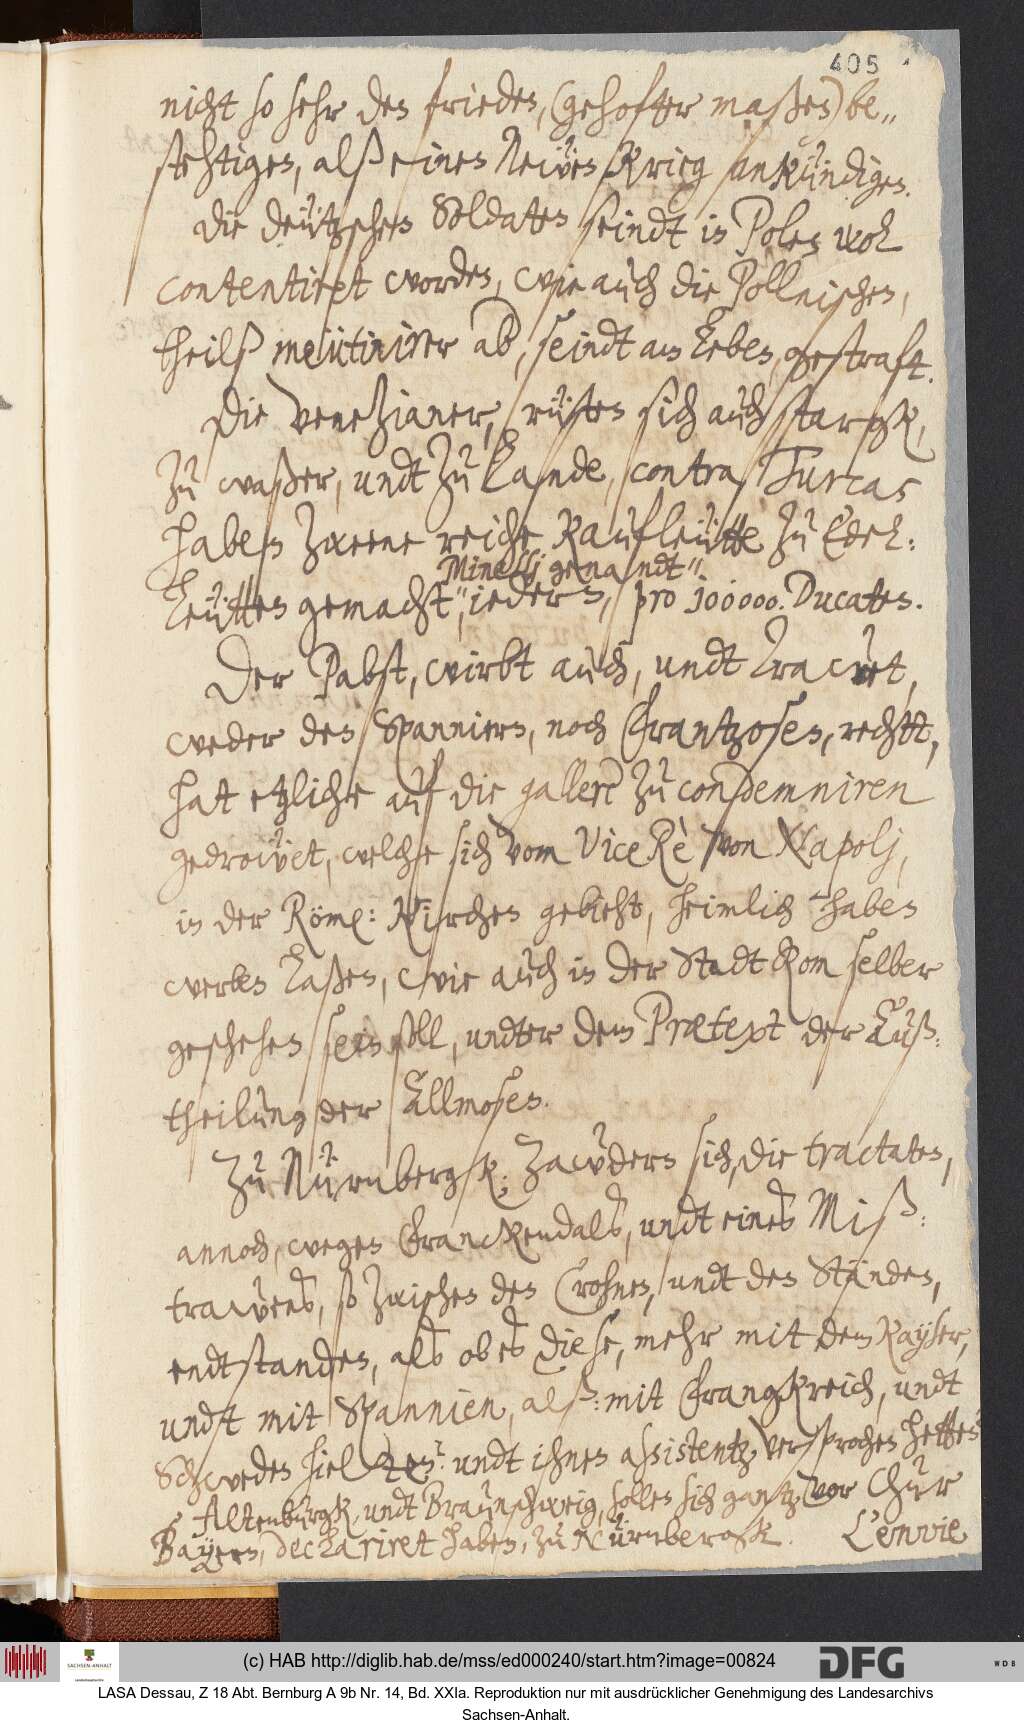 405
nicht so sehr den frieden, (gehofter maßen) be„
stehtigen, alß einen Neẅen Krieg ankündigen.
Die deützschen Soldaten seindt in Polen wol
contentiret worden, wie auch die Pollnischen,
theilß meütinirer ab, seindt am Leben, gestraft.
Die Venezianer, rüsten sich auch starck,
zu waßer, undt zu Lande, contra Turcas
haben zweene reiche Kaufleütte zu Edel:
Minelli genandt“
leütten gemacht“, iedern, pro 100000. Ducaten.
Der Pabst, wirbt auch, undt trawet,
weder den Spanniern, noch Frantzosen, rechtt,
hat etzliche auf die galleré zu condemniren
gedrowet, welche sich vom Vice Rè von Napolj,
in der Röm: Kirchen gebieht, heimlich haben
werben laßen, wie auch in der Stadt Rom selber
geschehen sein soll, undter dem Prætext der Auß„
theilung der Allmosen.
Zu Nürnbergk; zawdern sich, die tractaten,
annoch, wegen Franckendals, undt eines Miß:
trawens, so zwischen den Crohnen, undt den Ständen,
endtstanden, als ob es diese, mehr mit dem Kayser,
undt mit Spannien, alß: mit Franckreich, undt
Schweden hielten: undt ihnen assistentz versprochen hetten
Altenburgk, undt Braunschweig, sollen sich gantz vor Chur
Bayern, declariret haben, zu Nürnbergk. L'envie
(c) HAB http://diglib.hab.de/mss/ed000240/start.htm?image=00824
SACHSEN-ANHALT
DFG
WDB
LASA Dessau, Z 18 Abt. Bernburg A 9b Nr. 14, Bd. XXIa. Reproduktion nur mit ausdrücklicher Genehmigung des Landesarchivs
Sachsen-Anhalt.